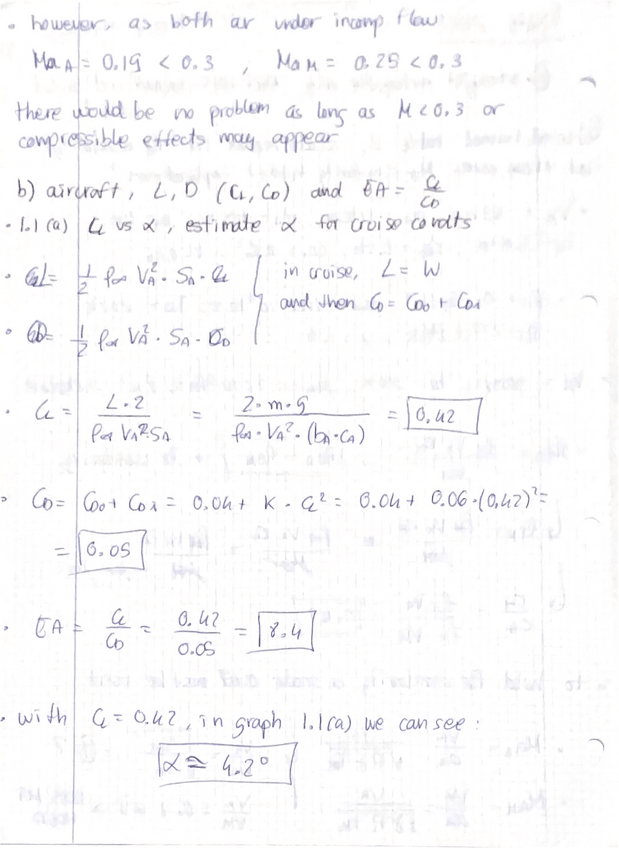 • however, as both ar under incomp flow
MaA = 0.19 < 0.3 , MaM = 0.25 < 0.3
there would be no problem as long as M<0.3 or
compressible effects may appear
b) aircraft, L, D (CL, CD) and EA = CL/CD
• 1.1(a) CL vs α, estimate α for cruise condts
• L = 1/2 ρ∞ VA² · SA · CL } in cruise, L = W
• D = 1/2 ρ∞ VA² · SA · CD } and then CD = CD0 + CDi
• CL = L·2 / ρ∞ VA² SA = 2·m·g / ρ∞·VA²·(bA·cA) = 0.42
• CD = CD0 + CDi = 0.04 + K · CL² = 0.04 + 0.06·(0,42)² =
= 0.05
• EA = CL/CD = 0.42/0.05 = 8.4
• with CL = 0.42, in graph 1.1(a) we can see:
α ≃ 4.2°